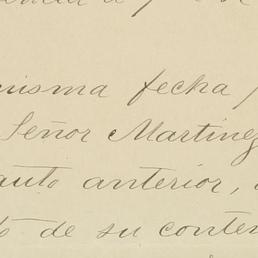 misma fecha
Señor Martinez
auto anterior,
de su conten